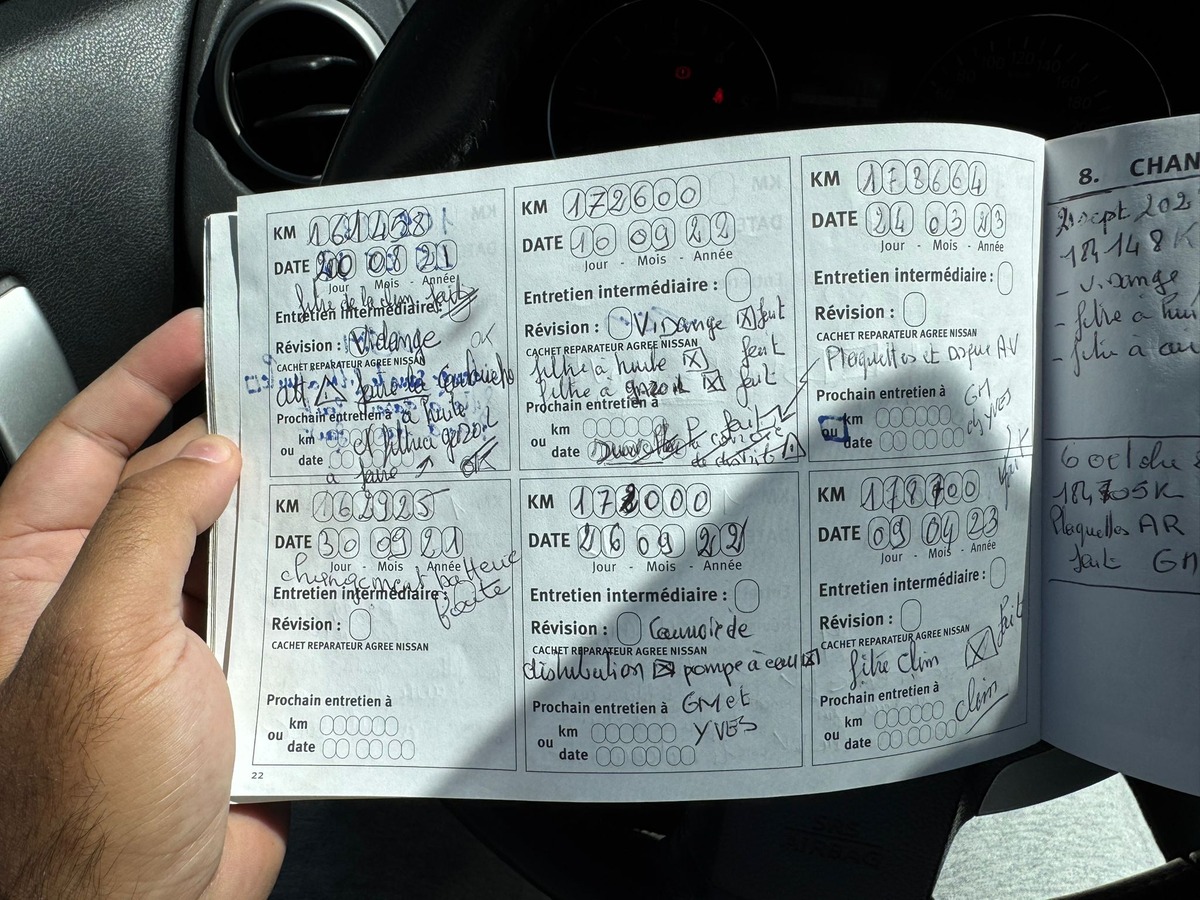 KM 161458
DATE 20 08 21
Jour - Mois - Année
filtre de la clim fait
Entretien intermédiaire :
Révision : Vidange OK
CACHET REPARATEUR AGREE NISSAN
att ⚠ faire la
Prochain entretien à à huile
km et gazol
ou
date
à faire ↗ OK
KM 162925
DATE 30 09 21
Jour - Mois - Année
changement batterie
Entretien intermédiaire : faite
Révision :
CACHET REPARATEUR AGREE NISSAN
Prochain entretien à
km
ou
date
22
KM 172600
DATE 10 09 22
Jour - Mois - Année
Entretien intermédiaire :
Révision : Vidange ☒ fait
CACHET REPARATEUR AGREE NISSAN
filtre à huile ☒ fait
filtre à gazol ☒ fait
Prochain entretien à
km fait
ou
date
KM 172000
DATE 26 09 22
Jour - Mois - Année
Entretien intermédiaire :
Révision : Courroie de
CACHET REPARATEUR AGREE NISSAN
distribution ☒ pompe à eau ☒
Prochain entretien à GM et
km YVES
ou
date
KM 178664
DATE 24 03 23
Jour - Mois - Année
Entretien intermédiaire :
Révision :
CACHET REPARATEUR AGREE NISSAN
Plaquettes et disque AV
Prochain entretien à
km GM
ou
date YVES
KM 178700
DATE 09 04 23
Jour - Mois - Année
Entretien intermédiaire :
Révision :
CACHET REPARATEUR AGREE NISSAN
filtre Clim ☒ fait
Prochain entretien à
km clim
ou
date
8. CHAN
sept 202
184 148 K
- vidange
- filtre à hui
- filtre à air
6 octobre
184 705K
Plaquettes AR
fait GM